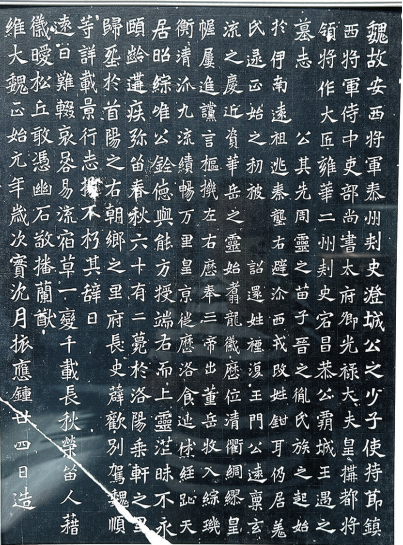 魏故安西將軍泰州刺史澄城公之少子使持節鎮
西將軍侍中吏部尚書太府卿光禄大夫皇攥都將
領將作大匠雍華二州刺史宕昌恭公霸城王遇之
墓志 公其先周靈之苗子晉之胤氏族之起始
於伊南遠祖逃秦壟右避沴西戎改姓鉗耳仍居羌
氏逯正始之初被 詔還姓禋復王門公遠稟玄
流之慶近資華岳之靈始翥龍儀歷位清衢綢繆皇
幄屢進讜言樞機左右歷奉三帝出董岳收入綜璣
衡清泒九流績暢万里皇京徙歷洛食延梂經趾天
居昭綜唯公銓德與能方授端右而上靈茫昧不永
頤齡遘疾弥笛春秋六十有二薨於洛陽乘軒之里
歸塟於首陽之右朝鄉之里府長史薛歡別駕魏順
等詳載景行志播不朽其辞曰
遠日難輟哀晷易流宿草一變千載長秋縈笛人藉
儀曖松丘敢憑幽石敬播蘭猷
維大魏正始元年歲次實沈月振應鍾廿四日造